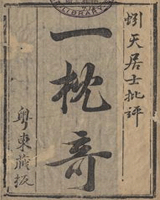 惕天居士批評
一枕奇
粤東藏板